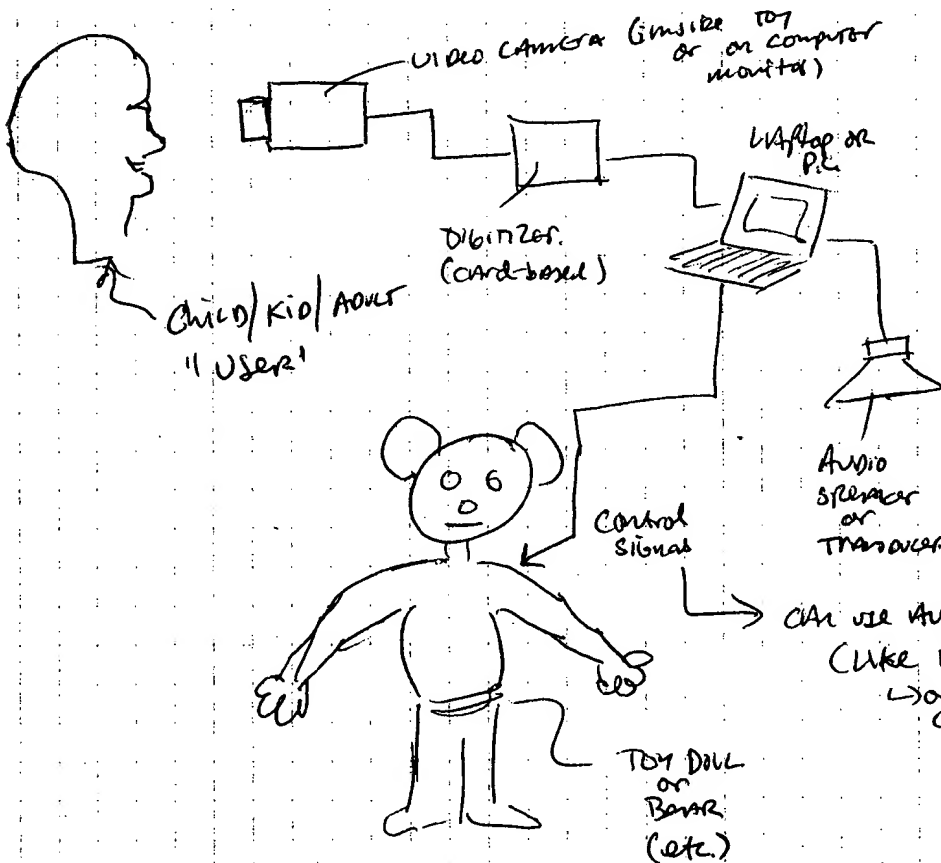 VIDEO CAMERA (inside TOY
or on computer
monitor)
LAPTOP OR
P.C.
DIGITIZER.
(card-based)
CHILD/KID/ADULT
"USER"
AUDIO
SPEAKER
or
TRANSDUCER
Control
Signal
CAN USE AU
(LIKE
TOY DOLL
or
BEAR
(etc.)